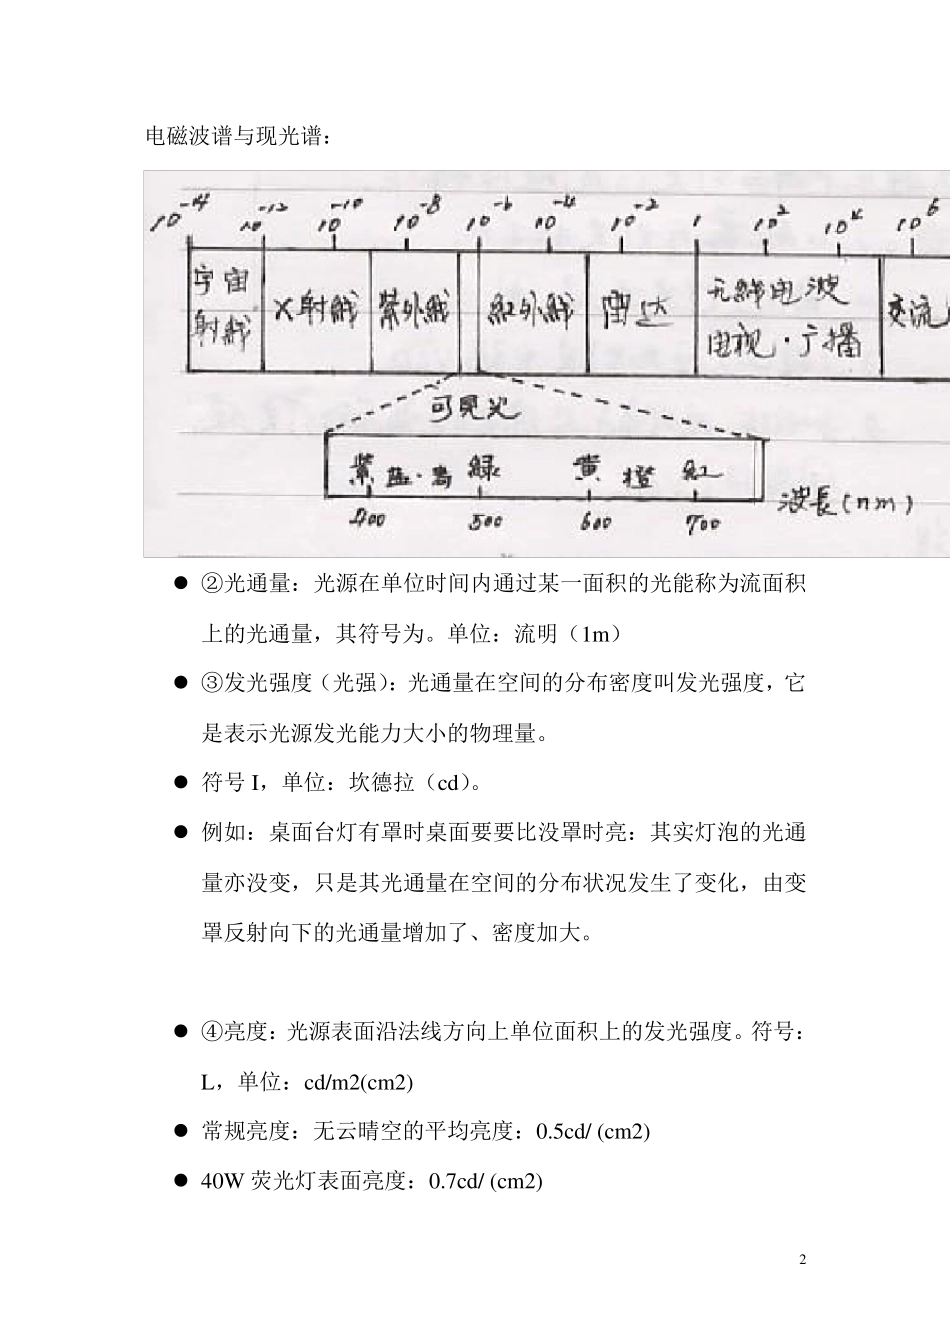 电磁波谱与现光谱：
10^-14 10^-12 10^-10 10^-8 10^-6 10^-4 10^-2 1 10^2 10^4 10^6
宇宙 X射线 紫外线 红外线 雷达 无线电波 交流
射线 电视·广播
可见光
紫 蓝·青 緑 黄 橙 红
400 500 600 700 波長(nm)
● ②光通量：光源在单位时间内通过某一面积的光能称为流面积
上的光通量，其符号为。单位：流明（1m）
● ③发光强度（光强）：光通量在空间的分布密度叫发光强度，它
是表示光源发光能力大小的物理量。
● 符号 I，单位：坎德拉（cd）。
● 例如：桌面台灯有罩时桌面要要比没罩时亮：其实灯泡的光通
量亦没变，只是其光通量在空间的分布状况发生了变化，由变
罩反射向下的光通量增加了、密度加大。
● ④亮度：光源表面沿法线方向上单位面积上的发光强度。符号：
L，单位：cd/m2(cm2)
● 常规亮度：无云晴空的平均亮度：0.5cd/ (cm2)
● 40W 荧光灯表面亮度：0.7cd/ (cm2)
2